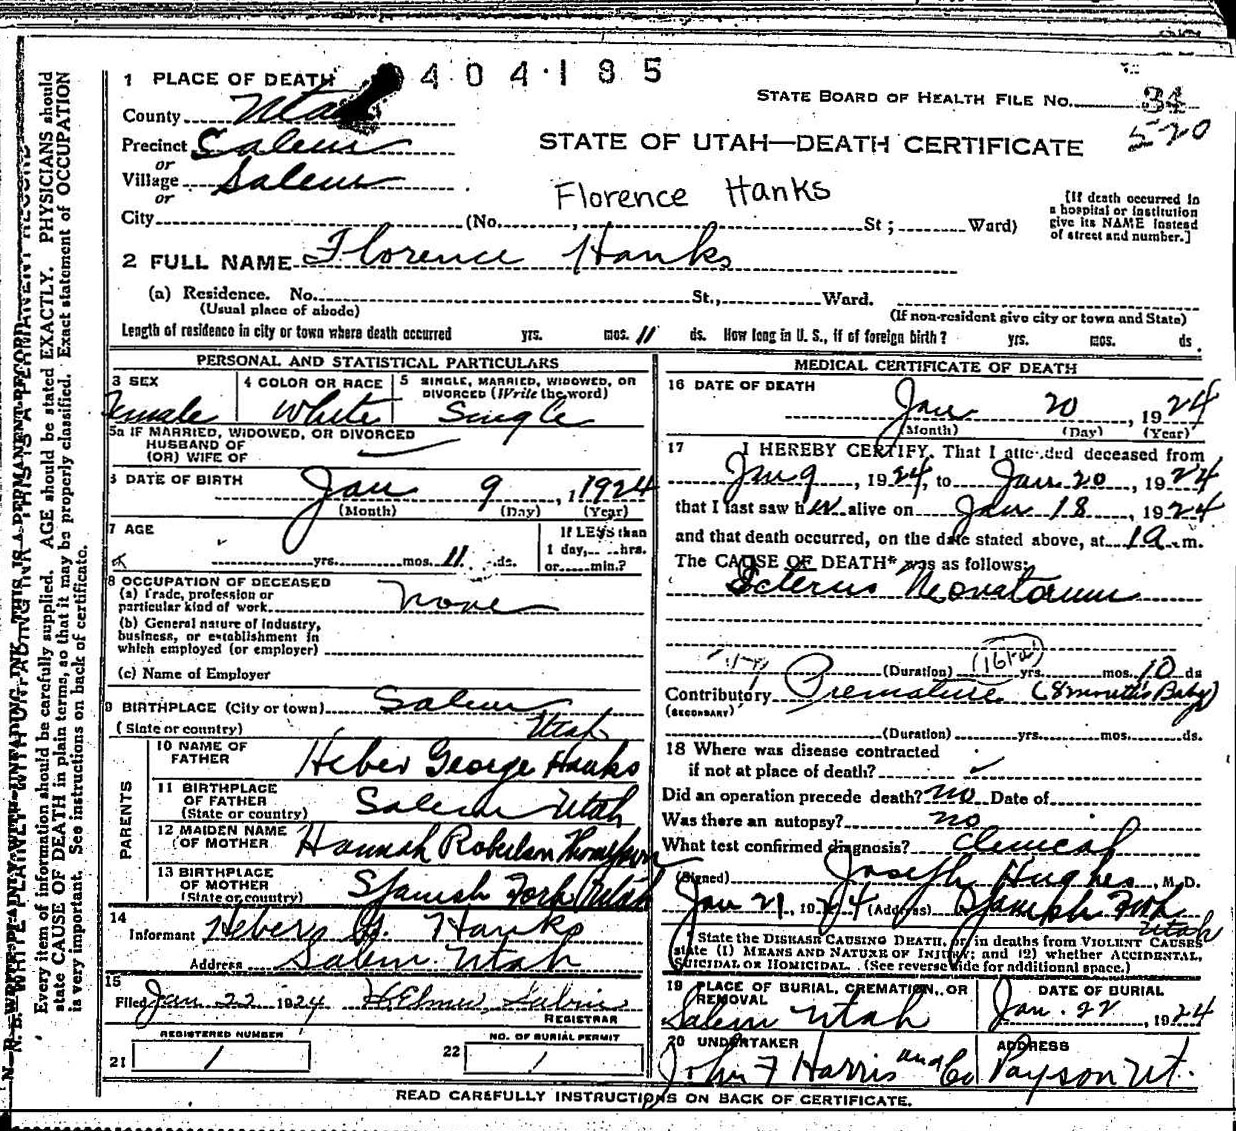 0404185
1 PLACE OF DEATH
STATE BOARD OF HEALTH FILE No. 34
520
County Utah
STATE OF UTAH—DEATH CERTIFICATE
Precinct Salem
or
Village Salem
or
Florence Hanks
City (No. , St ; Ward)
[If death occurred in
a hospital or institution
give its NAME instead
of street and number.]
2 FULL NAME Florence Hanks
(a) Residence. No. St., Ward.
(Usual place of abode)
(If non-resident give city or town and State)
Length of residence in city or town where death occurred yrs. mos. 11 ds. How long in U. S., if of foreign birth? yrs. mos. ds.
PERSONAL AND STATISTICAL PARTICULARS
3 SEX
Female
4 COLOR OR RACE
White
5 SINGLE, MARRIED, WIDOWED, OR
DIVORCED (Write the word)
Single
5a IF MARRIED, WIDOWED, OR DIVORCED
HUSBAND OF
(OR) WIFE OF
6 DATE OF BIRTH
Jan 9, 1924
(Month) (Day) (Year)
7 AGE
yrs. mos. 11 ds.
If LESS than
1 day, hrs.
or min.?
8 OCCUPATION OF DECEASED
(a) Trade, profession or
particular kind of work none
(b) General nature of industry,
business, or establishment in
which employed (or employer)
(c) Name of Employer
9 BIRTHPLACE (City or town) Salem
(State or country) Utah
PARENTS
10 NAME OF
FATHER Heber George Hanks
11 BIRTHPLACE
OF FATHER
(State or country) Salem Utah
12 MAIDEN NAME
OF MOTHER Hannah Robertson Thompson
13 BIRTHPLACE
OF MOTHER
(State or country) Spanish Fork Utah
14
Informant Heber G. Hanks
Address Salem Utah
15
Filed Jan 22 1924 H Elmer
REGISTRAR
REGISTERED NUMBER
21 1
NO. OF BURIAL PERMIT
22 1
MEDICAL CERTIFICATE OF DEATH
16 DATE OF DEATH
Jan 20, 1924
(Month) (Day) (Year)
17 I HEREBY CERTIFY, That I attended deceased from
Jan 9, 1924, to Jan 20, 1924
that I last saw her alive on Jan 18, 1924
and that death occurred, on the date stated above, at 1 a m.
The CAUSE OF DEATH* was as follows:
Icterus Neonatorum
(Duration) yrs. mos. 10 ds
Contributory Premature (8 months Baby)
(SECONDARY)
(Duration) yrs. mos. ds.
18 Where was disease contracted
if not at place of death?
Did an operation precede death? no Date of
Was there an autopsy? no
What test confirmed diagnosis? Clinical
(Signed) Joseph Hughes, M. D.
Jan 21, 1924 (Address) Spanish Fork
Utah
State the DISEASE CAUSING DEATH, or, in deaths from VIOLENT CAUSES
state (1) MEANS AND NATURE OF INJURY; and (2) whether ACCIDENTAL,
SUICIDAL OR HOMICIDAL. (See reverse side for additional space.)
19 PLACE OF BURIAL, CREMATION, OR
REMOVAL
Salem Utah
DATE OF BURIAL
Jan. 22, 1924
20 UNDERTAKER
John F Harris and Co
ADDRESS
Payson Ut.
READ CAREFULLY INSTRUCTIONS ON BACK OF CERTIFICATE.
Every item of information should be carefully supplied. AGE should be stated EXACTLY. PHYSICIANS should
state CAUSE OF DEATH in plain terms, so that it may be properly classified. Exact statement of OCCUPATION
is very important. See instructions on back of certificate.